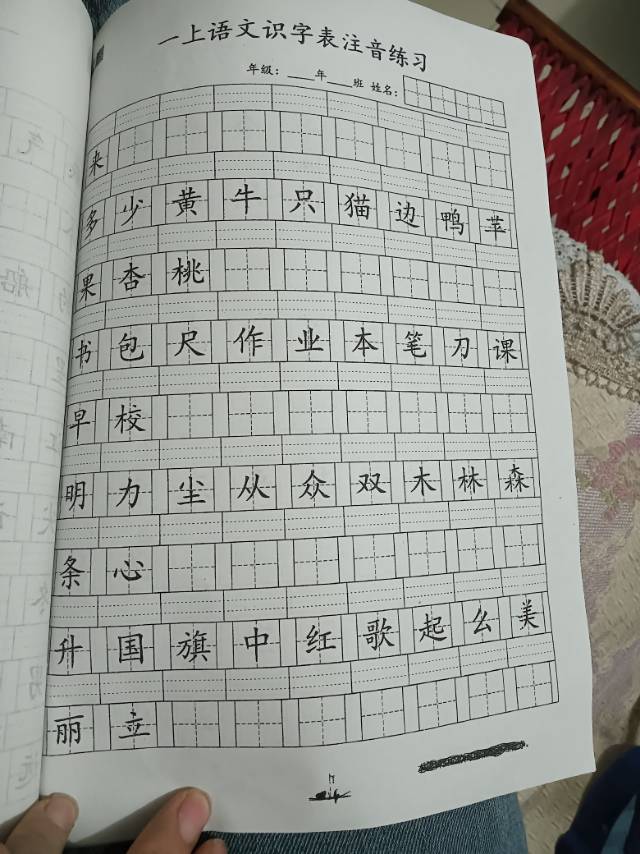 一上语文识字表注音练习
年级：____年____班 姓名：
来
多少黄牛只猫边鸭苹
果杏桃
书包尺作业本笔刀课
早校
明力尘从众双木林森
条心
升国旗中红歌起么美
丽立